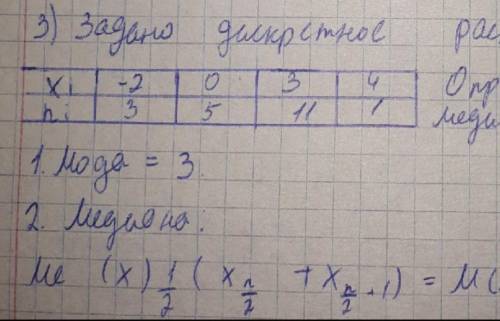 3) Задано дискретное рас
xi -2 0 3 4 Опр
ni 3 5 11 1 меди
1. Мода = 3.
2. Медиана:
Me (x) 1/2 ( x n/2 + x n/2 + 1) = M(